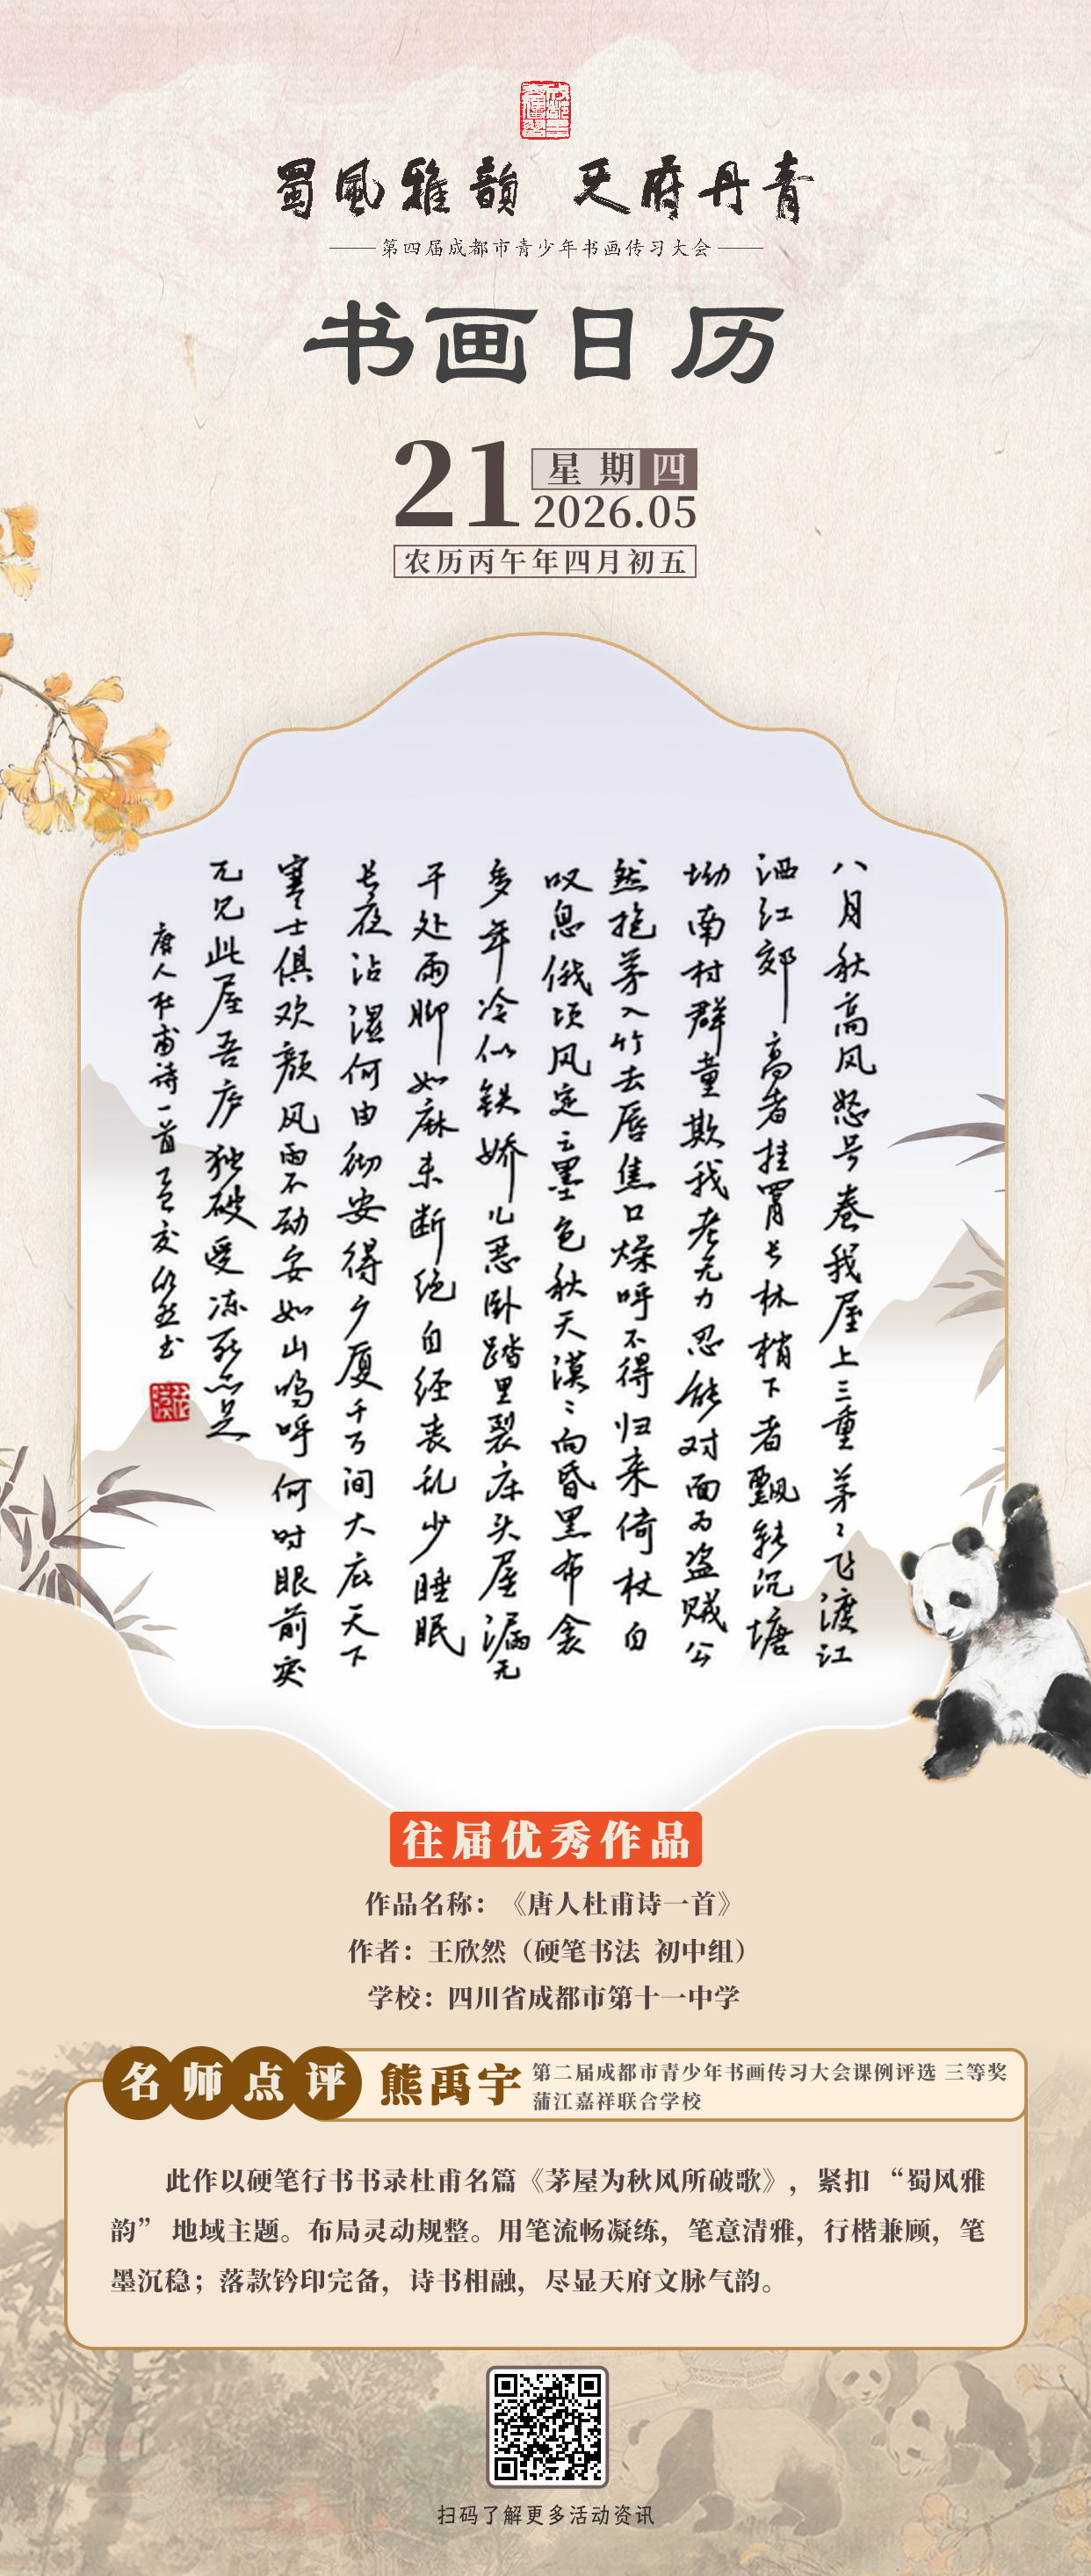 蜀风雅韵 天府丹青
第四届成都市青少年书画传习大会
书画日历
21
星期四
2026.05
农历丙午年四月初五
八月秋高风怒号卷我屋上三重茅〻飞渡江
洒江郊高者挂罥长林梢下者飘转沉塘
坳南村群童欺我老无力忍能对面为盗贼公
然抱茅入竹去唇焦口燥呼不得归来倚杖自
叹息俄顷风定云墨色秋天漠〻向昏黑布衾
多年冷似铁娇儿恶卧踏里裂床头屋漏无
干处雨脚如麻未断绝自经丧乱少睡眠
长夜沾湿何由彻安得广厦千万间大庇天下
寒士俱欢颜风雨不动安如山呜呼何时眼前突
兀见此屋吾庐独破受冻死亦足
唐人杜甫诗一首孟夏欣然书
往届优秀作品
作品名称：《唐人杜甫诗一首》
作者：王欣然（硬笔书法 初中组）
学校：四川省成都市第十一中学
名师点评
熊禹宇
第二届成都市青少年书画传习大会课例评选 三等奖
蒲江嘉祥联合学校
此作以硬笔行书书录杜甫名篇《茅屋为秋风所破歌》，紧扣“蜀风雅
韵”地域主题。布局灵动规整。用笔流畅凝练，笔意清雅，行楷兼顾，笔
墨沉稳；落款钤印完备，诗书相融，尽显天府文脉气韵。
扫码了解更多活动资讯